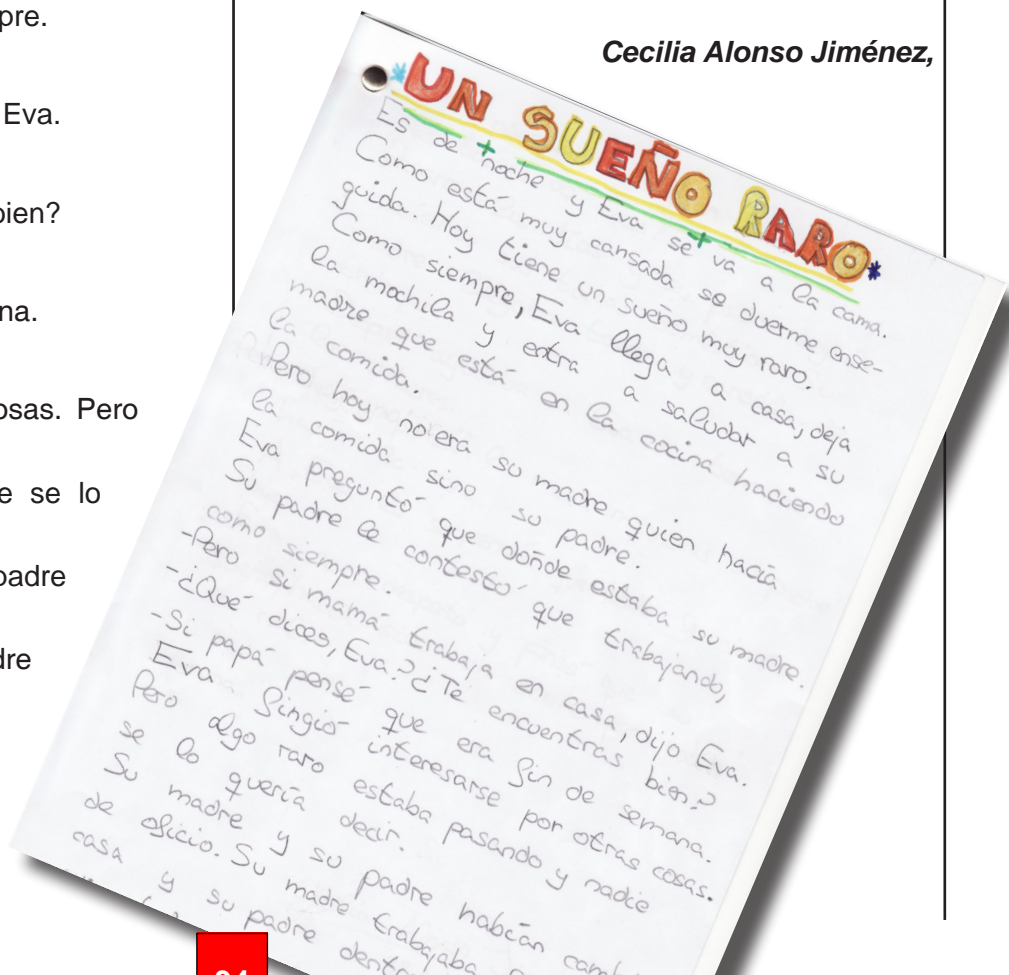 pre.
Eva.
bien?
na.
osas. Pero
e se lo
padre
dre
Cecilia Alonso Jiménez,
*UN SUEÑO RARO*
Es de noche y Eva se va a la cama.
Como está muy cansada se duerme ense-
guida. Hoy tiene un sueño muy raro.
Como siempre, Eva llega a casa, deja
la mochila y entra a saludar a su
madre que está en la cocina haciendo
la comida.
Pero hoy no era su madre quien hacía
la comida sino su padre.
Eva preguntó que dónde estaba su madre.
Su padre le contestó que trabajando,
como siempre.
-Pero si mamá trabaja en casa, dijo Eva.
-¿Qué dices, Eva? ¿Te encuentras bien?
-Si papá pensé que era fin de semana.
Eva fingió interesarse por otras cosas.
Pero algo raro estaba pasando y nadie
se lo quería decir.
Su madre y su padre habían
de oficio. Su madre trabajaba
casa y su padre